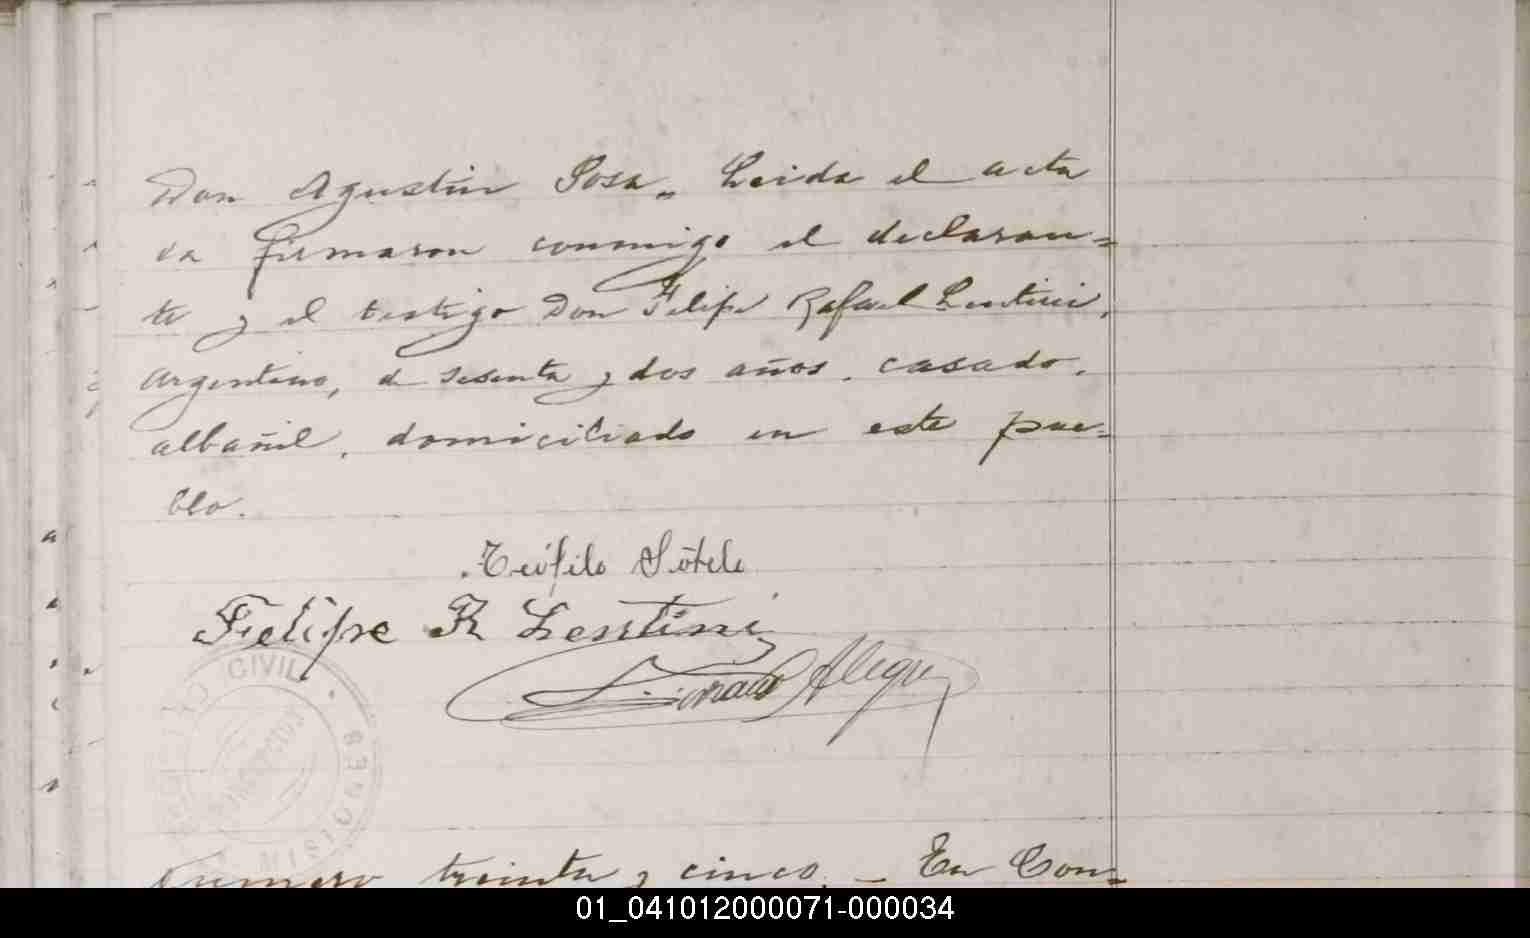 Don Agustin Sosa,, Leida el acta
da firmaron conmigo el declaran=
te y el testigo Don Felipe Rafael Lentini,
Argentino, de sesenta y dos años, casado,
albañil, domiciliado en este pue=
blo.
Teófilo Sótelo
Felipe R Lentini
Alegre
CIVIL
MISIONES
Numero treinta y cinco. _ En Con=
01_041012000071-000034